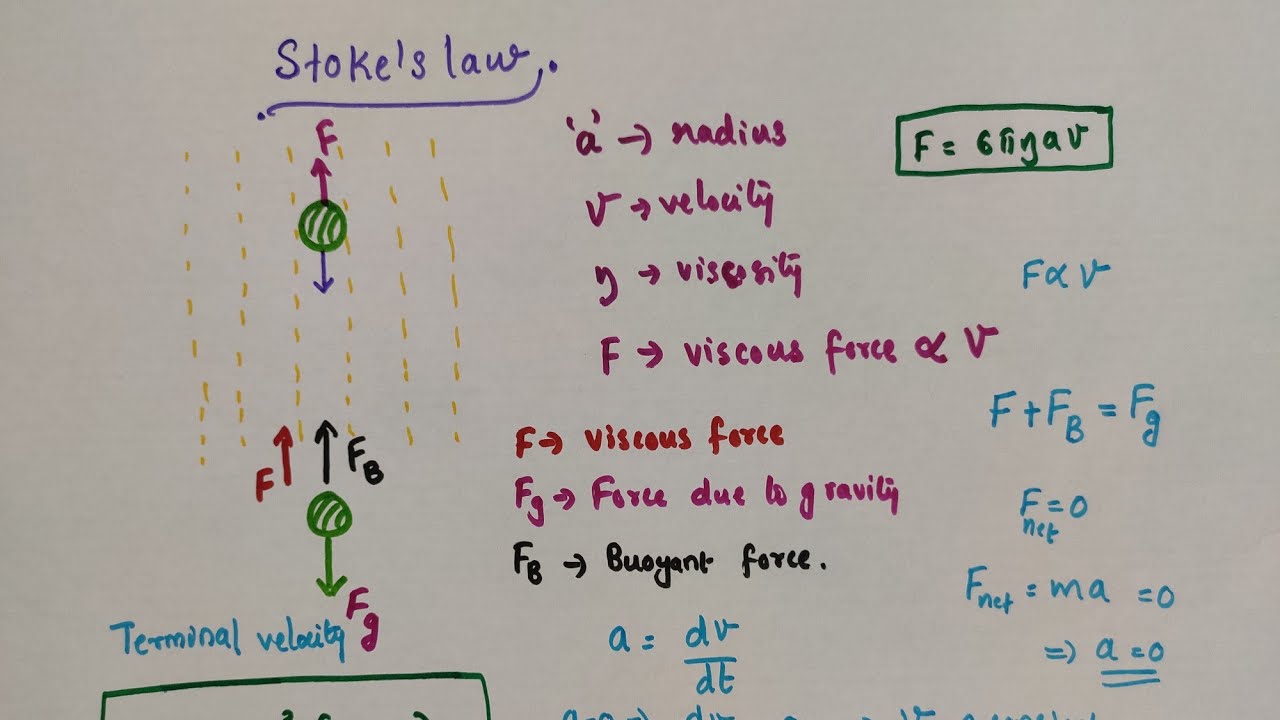 Stoke's law
F
'a' → radius
F = 6πηav
v → velocity
η → viscosity
F ∝ v
F → viscous force ∝ v
F + F_B = F_g
F
F_B
F → viscous force
F_g → Force due to gravity
F_net = 0
F_B → Buoyant force.
F_g
F_net = ma = 0
Terminal velocity
a = dv/dt
⇒ a = 0